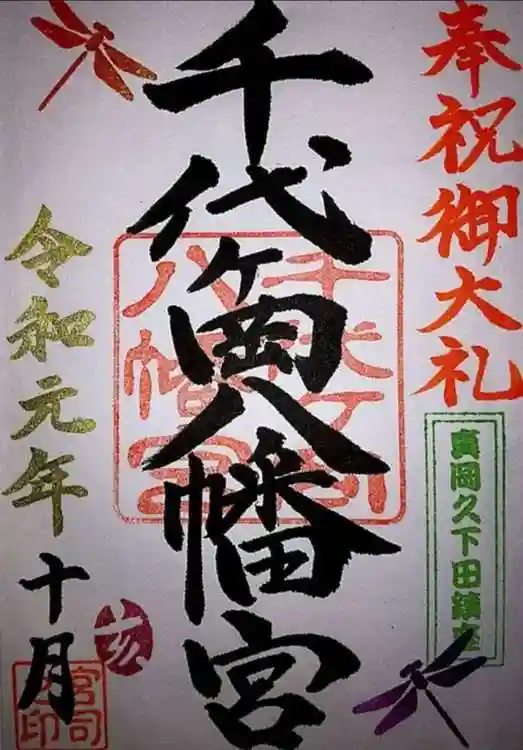 奉祝御大礼
真岡久下田鎮座
千代ヶ岡八幡宮
千代ヶ岡
八幡宮
令和元年
十月
亥
宮司
之印